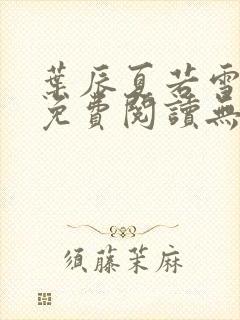 葉辰夏若雪
免費閱讀無
須藤茉麻